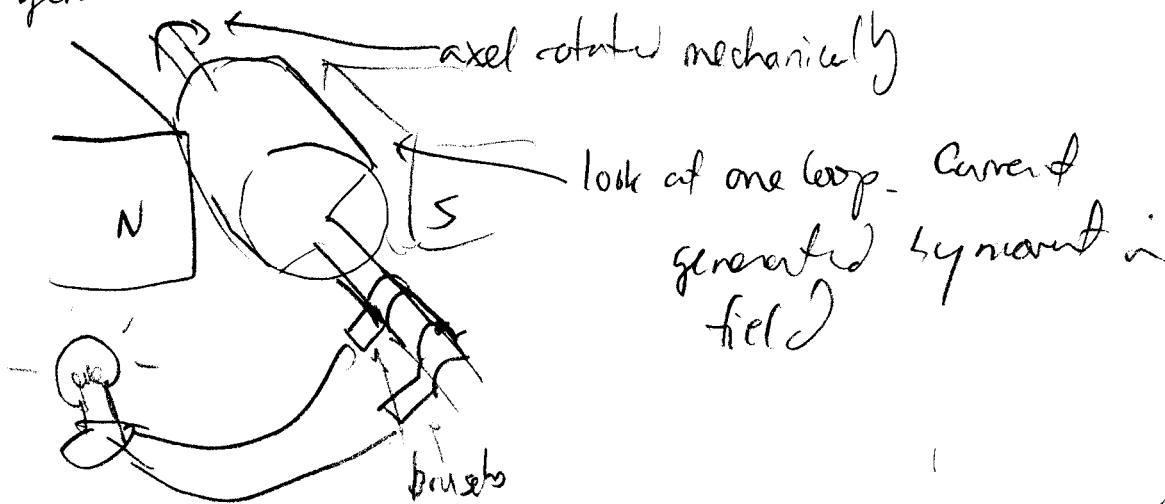 gen
axel rotated mechanically
look at one loop. Current
N
S
generated by movement in
field
brushes